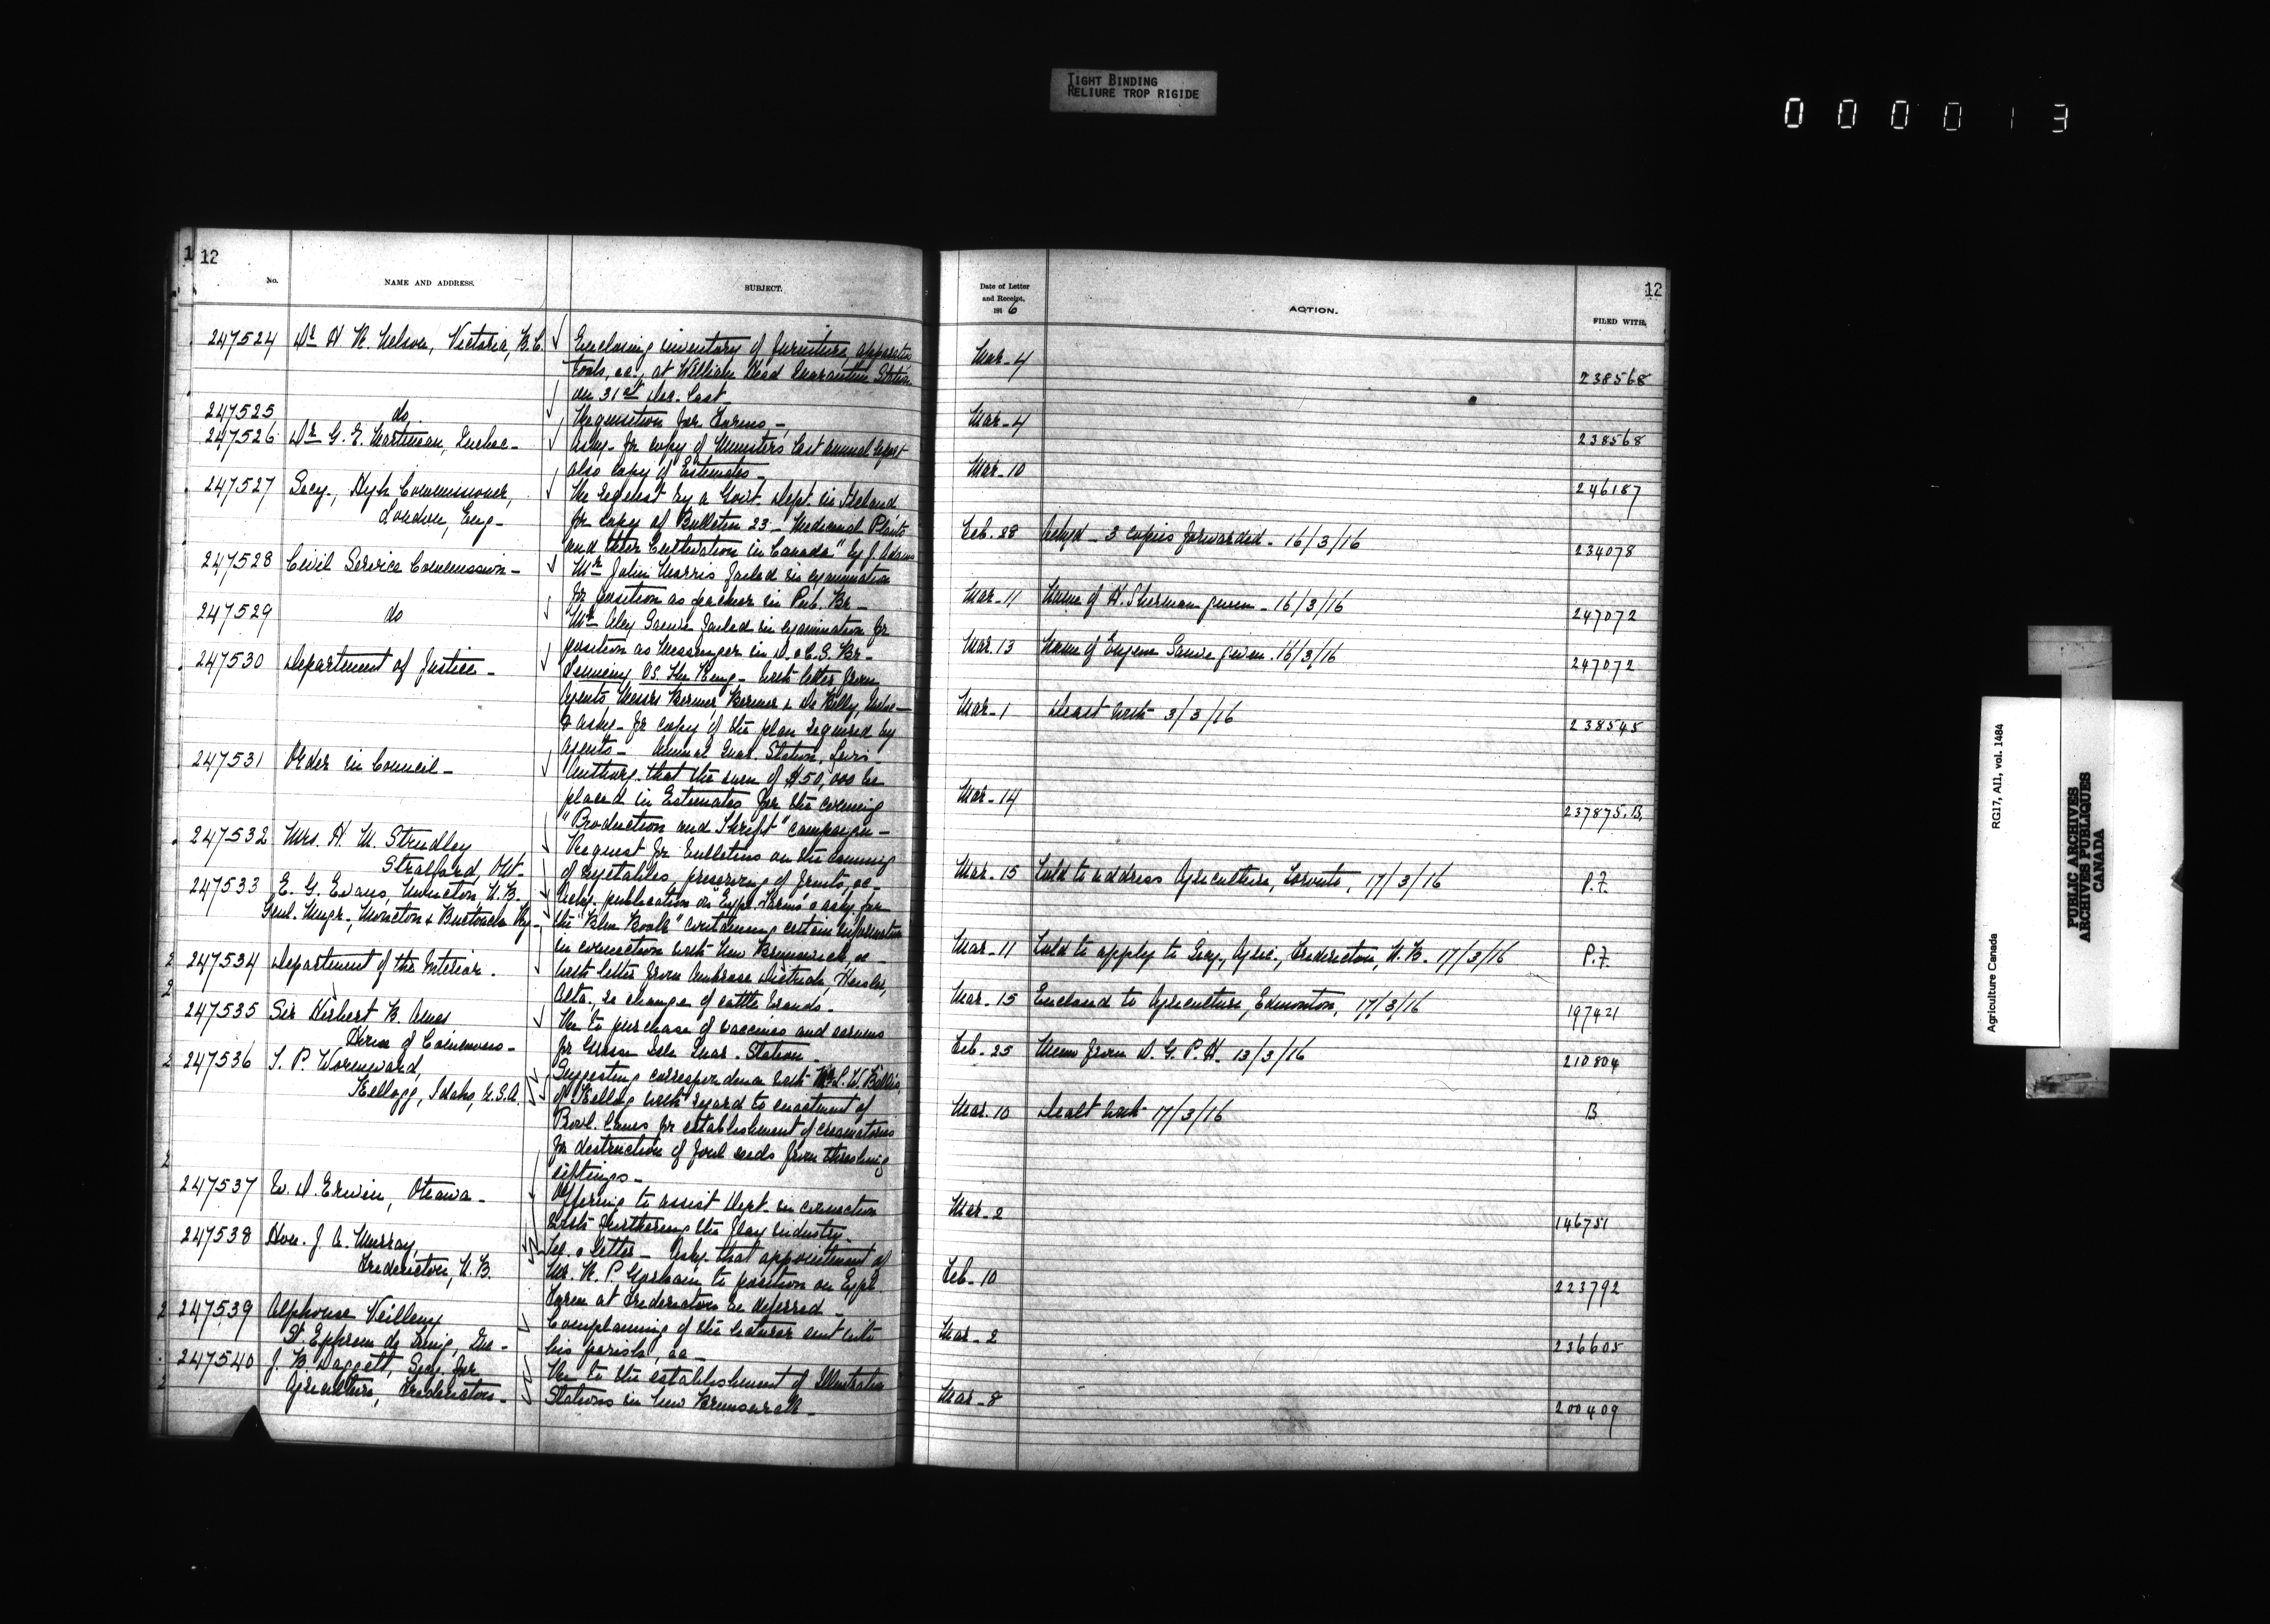 TIGHT BINDING
RELIURE TROP RIGIDE
000013
12
No.
NAME AND ADDRESS.
SUBJECT.
247524 Dr H R. Nelson, Victoria, B.C.
Enclosing inventory of furniture, apparatus
tools, &c., at William Head Quarantine Station
on 31st Dec. last
247525 do
Requisition for Forms -
247526 Dr G. E. Martineau, Quebec -
Asks for copy of Minister's last annual report
also copy of Estimates -
247527 Secy., High Commissioner,
London, Eng -
Re request by a Govt. Dept. in Ireland
for copy of Bulletin 23 - Medicinal Plants
and their Cultivation in Canada" by J. Adams
247528 Civil Service Commission -
Mr John Morris failed in examination
for position as packer in Pub. Br -
247529 do
Mr Aley failed in examination for
position as Messenger in D. & C. S. Br -
247530 Department of Justice -
vs. The King - With letter from
Agents Messrs Bernier Bernier & De Billy, Quebec -
& asks - for copy of the plan required by
Agents - Animal Quar. Station, Levis.
247531 Order in Council -
Authorg. that the sum of $50,000 be
placed in Estimates for the coming
"Production and Thrift" campaign -
247532 Mrs. H. M. Strudley
Stratford, Ont -
Request for bulletins on the canning
of vegetables, preserving of fruits, &c -
247533 E. G. Evans, Moncton, N.B.
Genl. Mngr., Moncton & Buctouche Ry -
publication on "Expl. Farms" & asks for
the "Blue Book" containing certain information
in connection with New Brunswick, &c -
247534 Department of the Interior.
With letter from Ambrose Dietrich, Heisler,
Alta. re change of cattle brands.
247535 Sir Herbert B. Ames
House of Commons -
Re to purchase of vaccines and serums
for Grosse Isle Quar. Station -
247536 T. P. Wormward,
Kellogg, Idaho, U.S.A.
Suggesting correspondence with Mr S. W.
of Kellogg with regard to enactment of
Provl. Laws for establishment of crematories
for destruction of foul seeds from threshing
siftings -
247537 W. D. Erwin, Ottawa -
Offering to assist Dept. in connection
with furthering the flax industry -
247538 Hon. J. A. Murray,
Fredericton, N.B.
Tel. & letter - Asks. that appointment of
Mr. R. P. Gorham to position on Expl.
Farm at Fredericton be deferred -
247539 Alphonse Veilleux
St. Ephrem de Tring, Que -
Complaining of the lecturer sent into
his parish, &c -
247540 J. B. Daggett, Secy. for
Agriculture, Fredericton -
Re to the establishment of Illustration
Stations in New Brunswick -
12
Date of Letter
and Receipt,
1916
ACTION.
FILED WITH.
Mar - 4 238568
Mar - 4 238568
Mar - 10 246187
Feb. 28 Ackgd - 3 copies forwarded - 16/3/16 234078
Mar - 11 Name of H. Sherman given - 16/3/16 247072
Mar. 13 Name of Eugene given. 16/3/16 247072
Mar - 1 Dealt with 3/3/16 238545
Mar - 14 237875.B.
Mar - 15 Told to address Agriculture, Toronto, 17/3/16 P.F.
Mar - 11 Told to apply to Secy., Agric., Fredericton, N.B. 17/3/16 P.F.
Mar - 15 Enclosed to Agriculture, Edmonton, 17/3/16 197421
Feb - 25 Memo from D. G. P. H. 13/3/16 210804
Mar. 10 Dealt with 17/3/16 B
Mar - 2 146751
Feb - 10 223792
Mar - 2 236605
Mar - 8 200409
Agriculture Canada RG17, AII, vol. 1484
PUBLIC ARCHIVES
ARCHIVES PUBLIQUES
CANADA